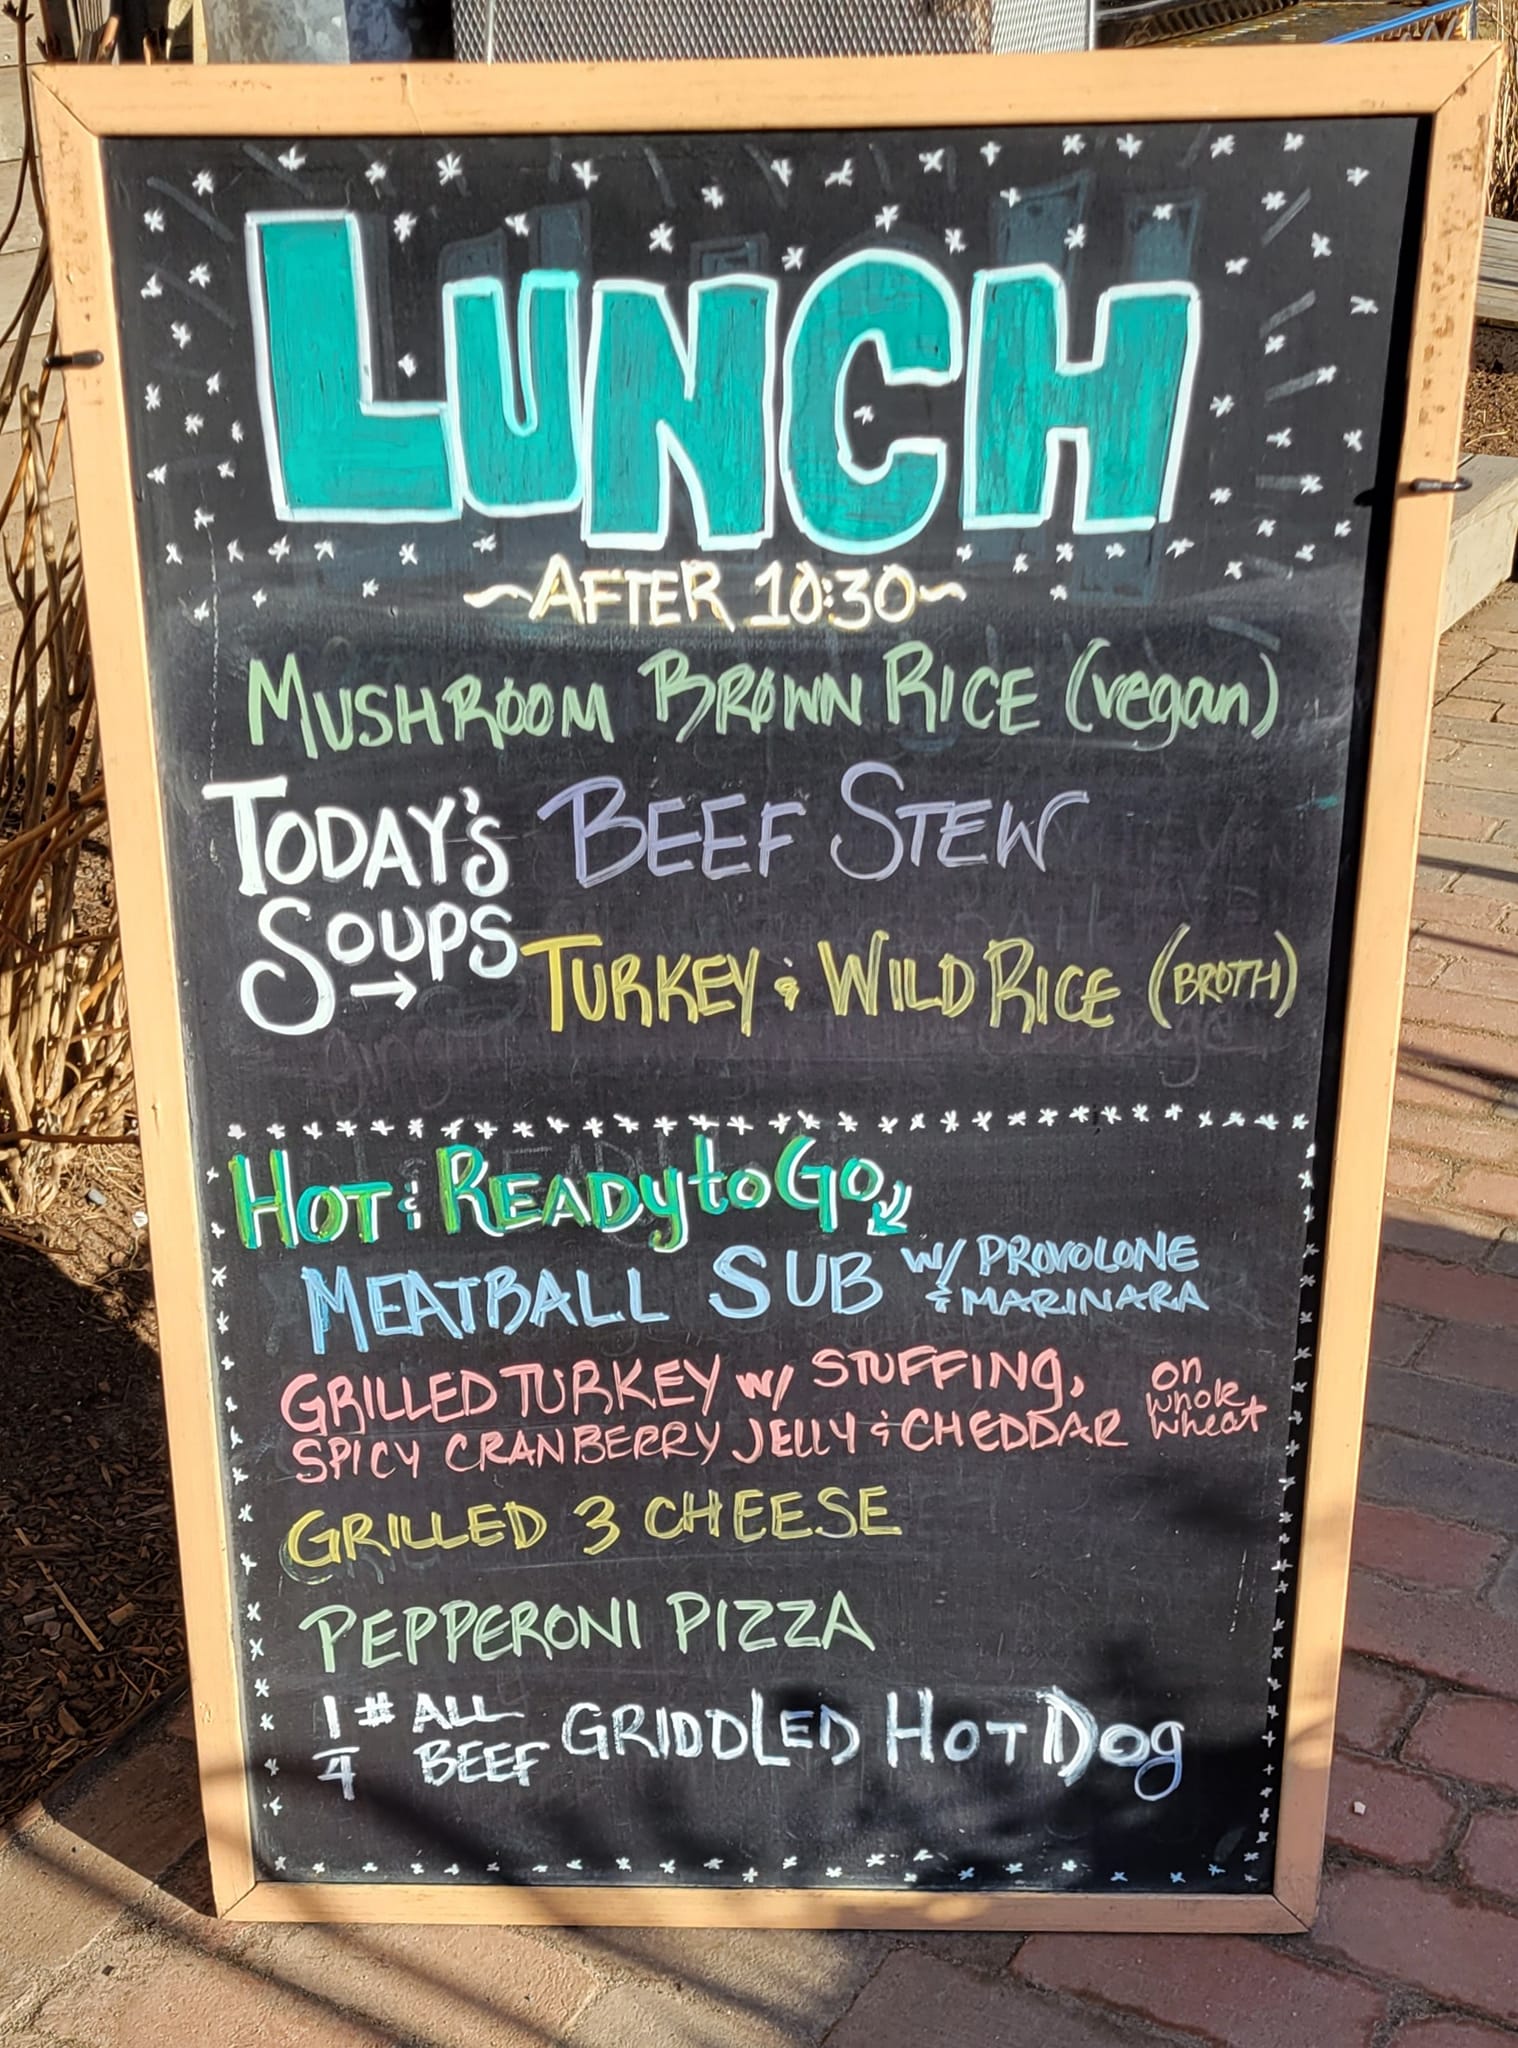 LUNCH
~AFTER 10:30~
MUSHROOM BROWN RICE (vegan)
TODAY'S
SOUPS →
BEEF STEW
TURKEY & WILD RICE (BROTH)
HOT & READY to GO
MEATBALL SUB W/ PROVOLONE
& MARINARA
GRILLED TURKEY W/ STUFFING,
SPICY CRANBERRY JELLY & CHEDDAR
on
whole
wheat
GRILLED 3 CHEESE
PEPPERONI PIZZA
1/4 # ALL
BEEF
GRIDDLED HOT DOG